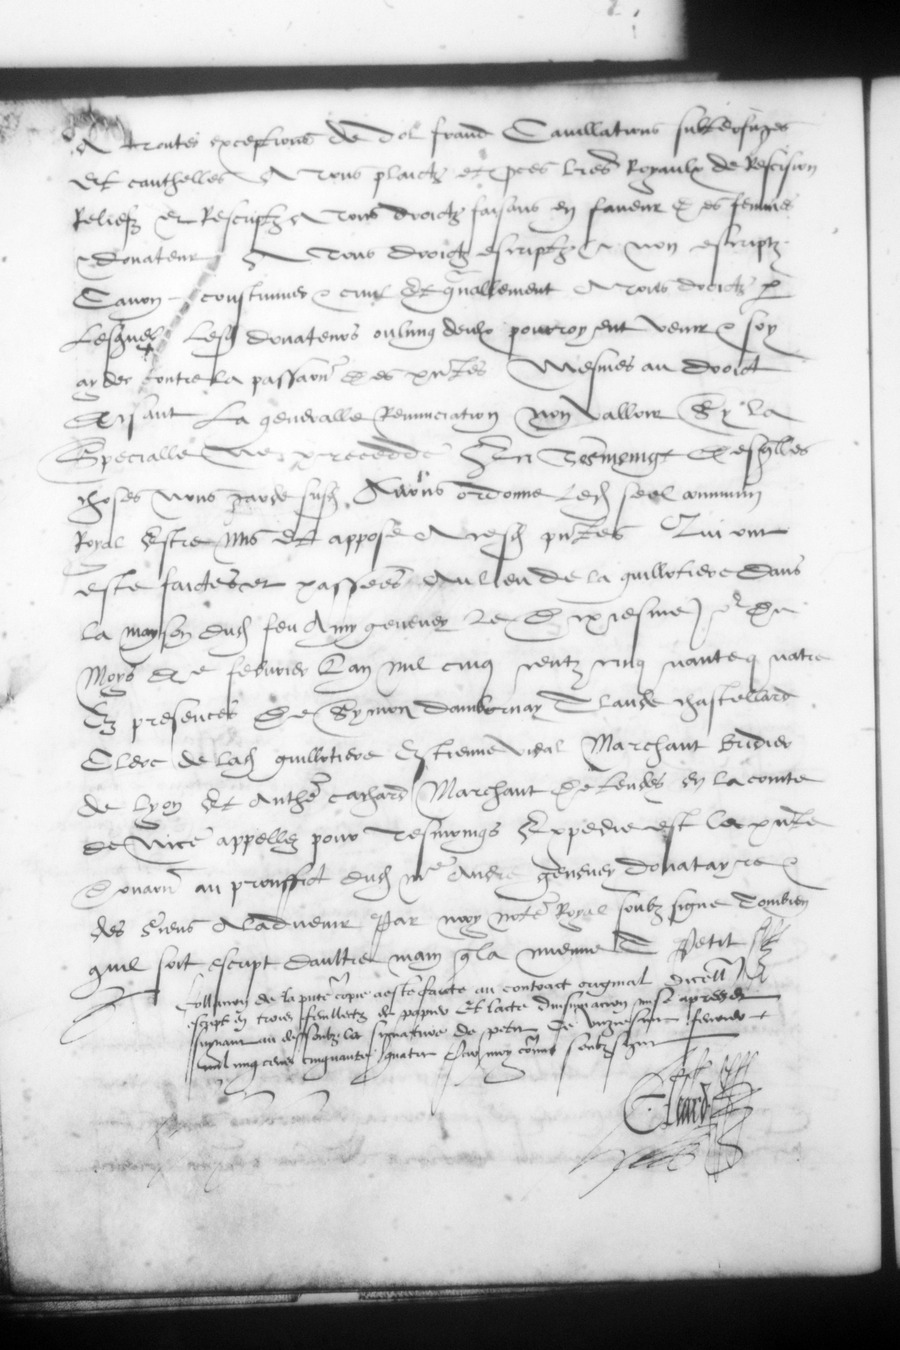 A toutes exceptions de dol fraud Cavillations subterfuges
Et cauthelles A tous plaictz et pces lres Royaulx de Rescision
Reliefz et Rescriptz A tous droictz faisans en faveur des femmes
donateur A tous droictz escriptz et non escriptz
Canon coustumier civil Et gnallement A tous droictz par
Lesquelz Lesd donateurs ou lung deulx pourroyent venir soy
ayder contre la passaon des pntes Mesmes au droict
disant La generalle Renunciation non valloir Sy la
Specialle ne precedde En tesmoingt desqlles
choses nous garde susd Avons ordonne led seel commun
Royal Estre mis Et appose A cesd pntes Qui ont
este faictes et passees Au lieu de la guillotiere Dans
la mayson dud feu Amy genevey Le dixiesme jor du
Moys de febvrier Lan mil cinq centz cinquante quatre
Es presences de Symon dambornay Claude chastellard
Clerc de lad guillotiere Estienne vial Marchant bridier
de lyon Et Anthe cachard Marchant de tendes en la comte
de Nice appellez pour tesmoings Expedie est ces pnte
donaon au prouffict dud me Andre genevey donatayre
des siens A ladvenir Par moy notre Royal soubz signe Combien
quil soit escript daultre main q la mienne Petit
Collation de la pnte copie a este faicte au contract original dicelluy
escript en trois feulletz de papier Et lacte dinsignuacion mise apres
signant au dessoubz les signature de petit Ce unziesme febvrier
mil cinq cens cinquante quatre Par moy comis soubz signe
Eleard